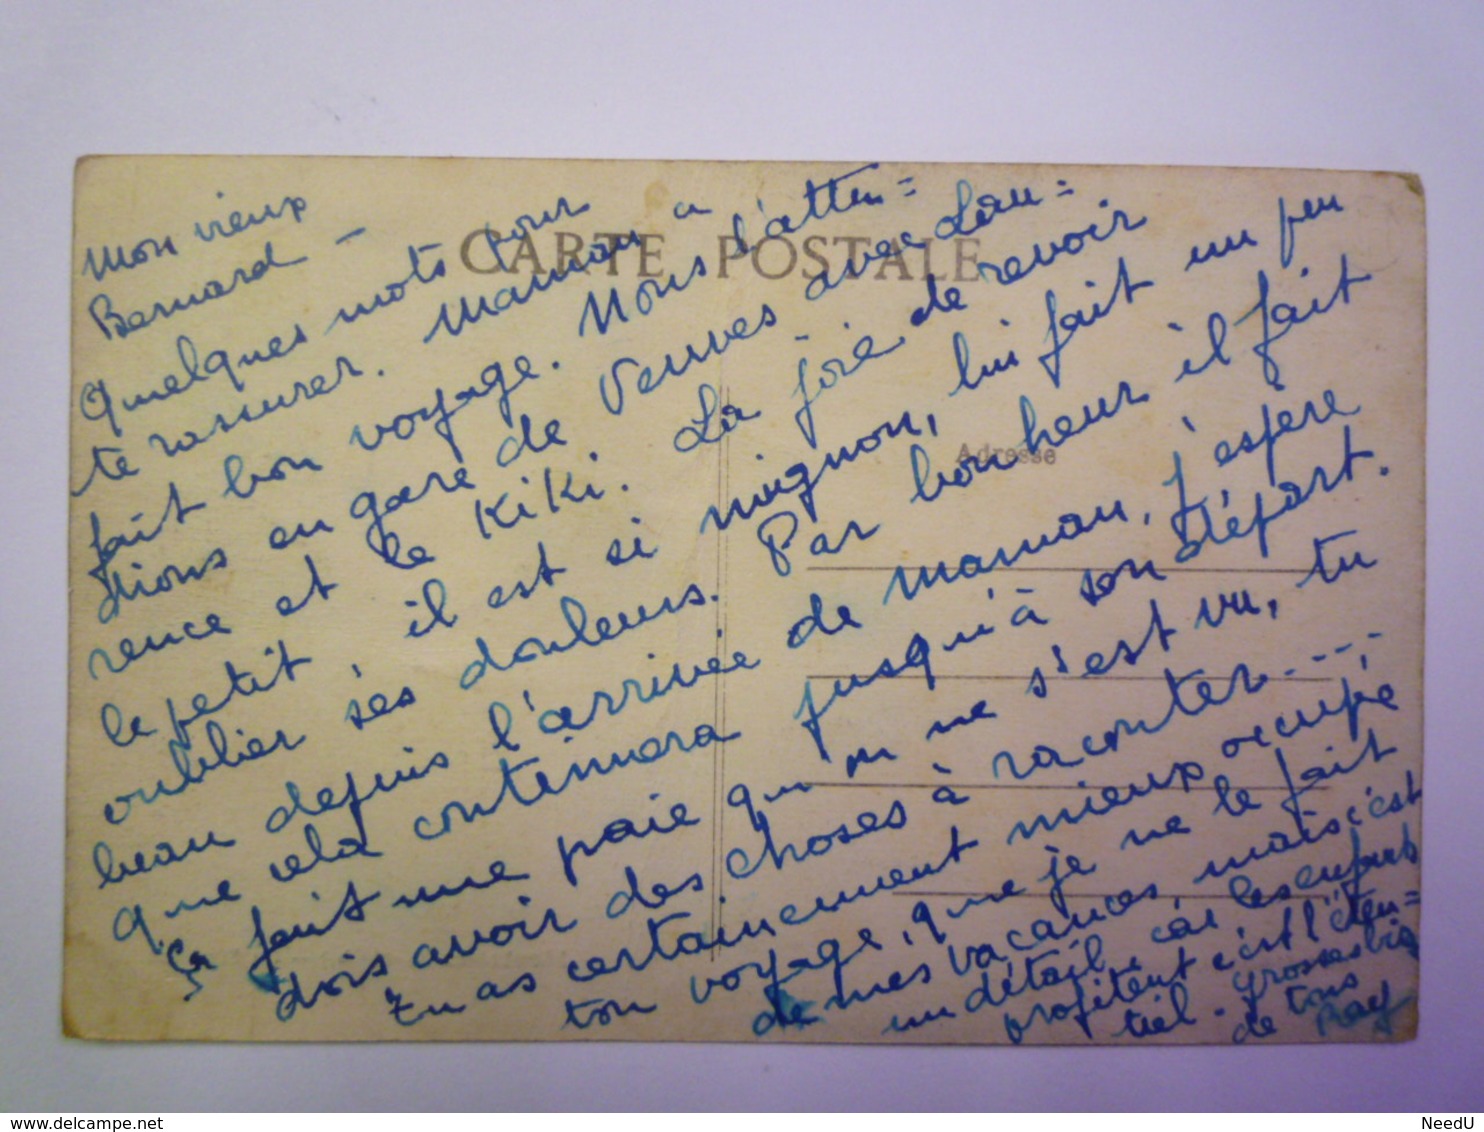 CARTE POSTALE
Adresse
Mon vieux
Bernard —
Quelques mots pour
te rassurer. Maman a
fait bon voyage. Nous l'atten=
dions en gare de Veuves avec Lau=
rence et le Kiki. La joie de revoir
le petit, il est si mignon, lui fait un peu
oublier ses douleurs. Par bonheur il fait
beau depuis l'arrivée de maman, j'espère
que cela continuera jusqu'à son départ.
Ça fait une paie qu'on ne s'est vu, tu
dois avoir des choses à raconter....
Tu as certainement mieux occupé
ton voyage, que je ne le fait
de mes vacances mais c'est
un détail, car les enfants
profitent c'est l'éssen=
tiel. grosses bises
de tous
Ray
NeedU